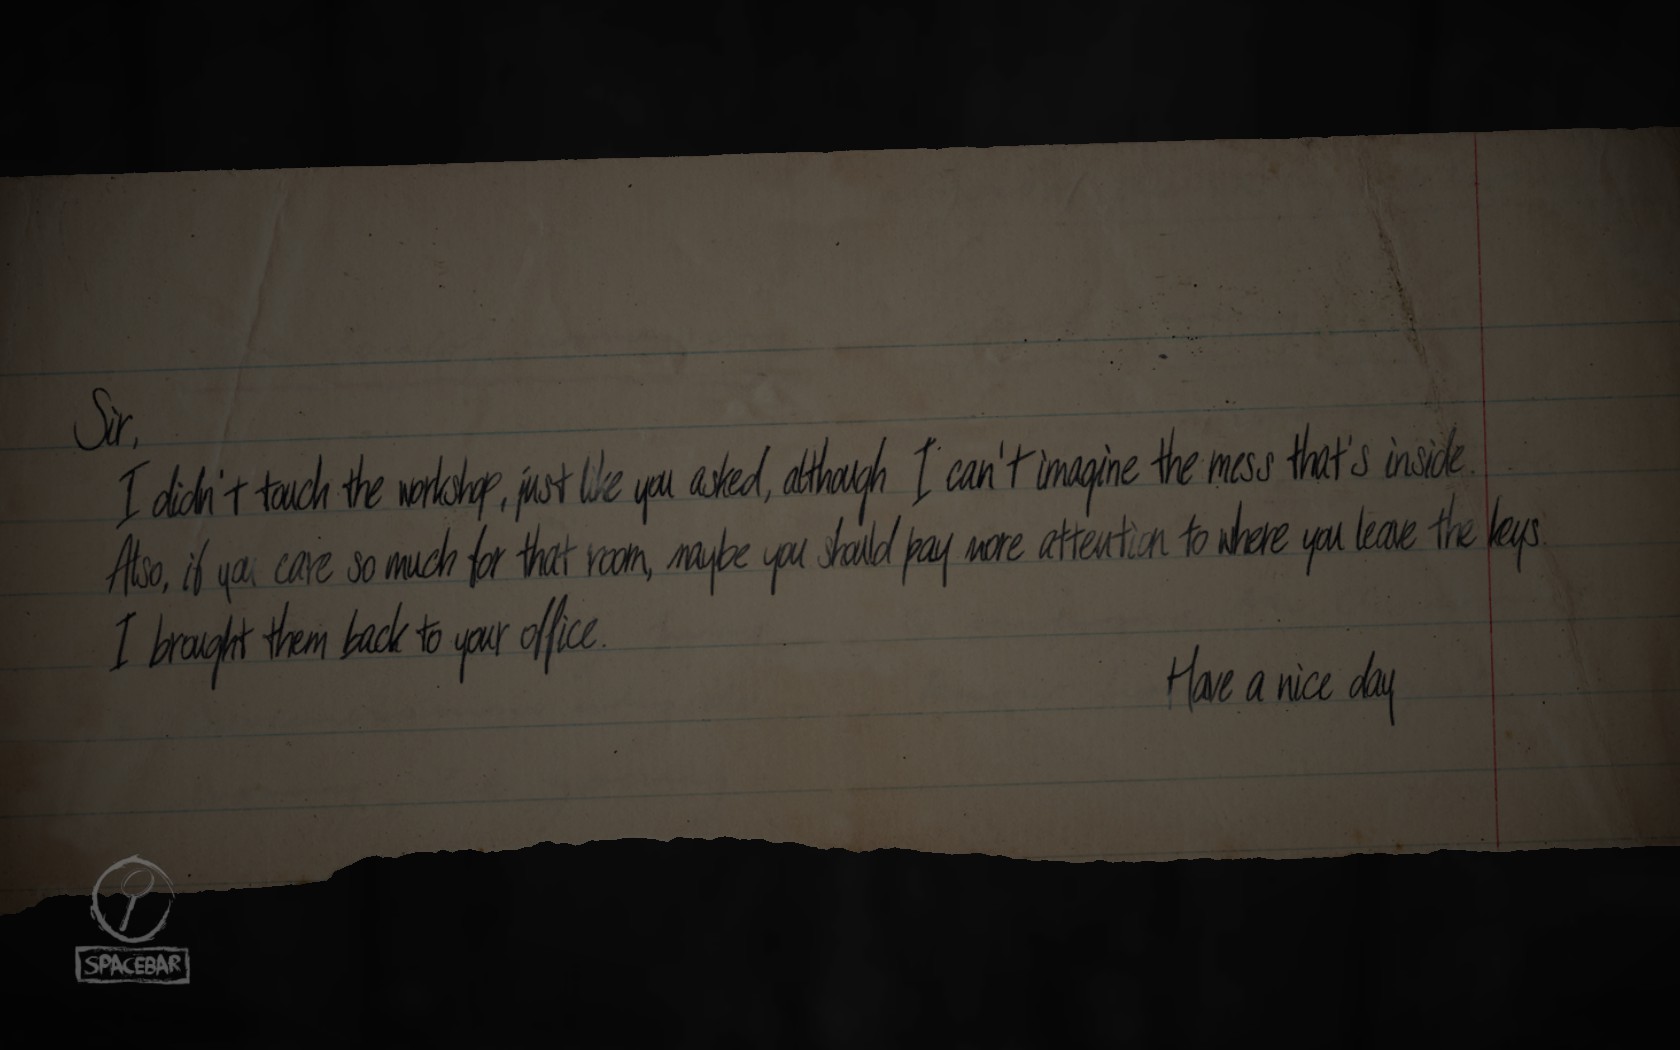 Sir,
I didn't touch the workshop, just like you asked, although I can't imagine the mess that's inside.
Also, if you care so much for that room, maybe you should pay more attention to where you leave the keys.
I brought them back to your office.
Have a nice day
SPACEBAR